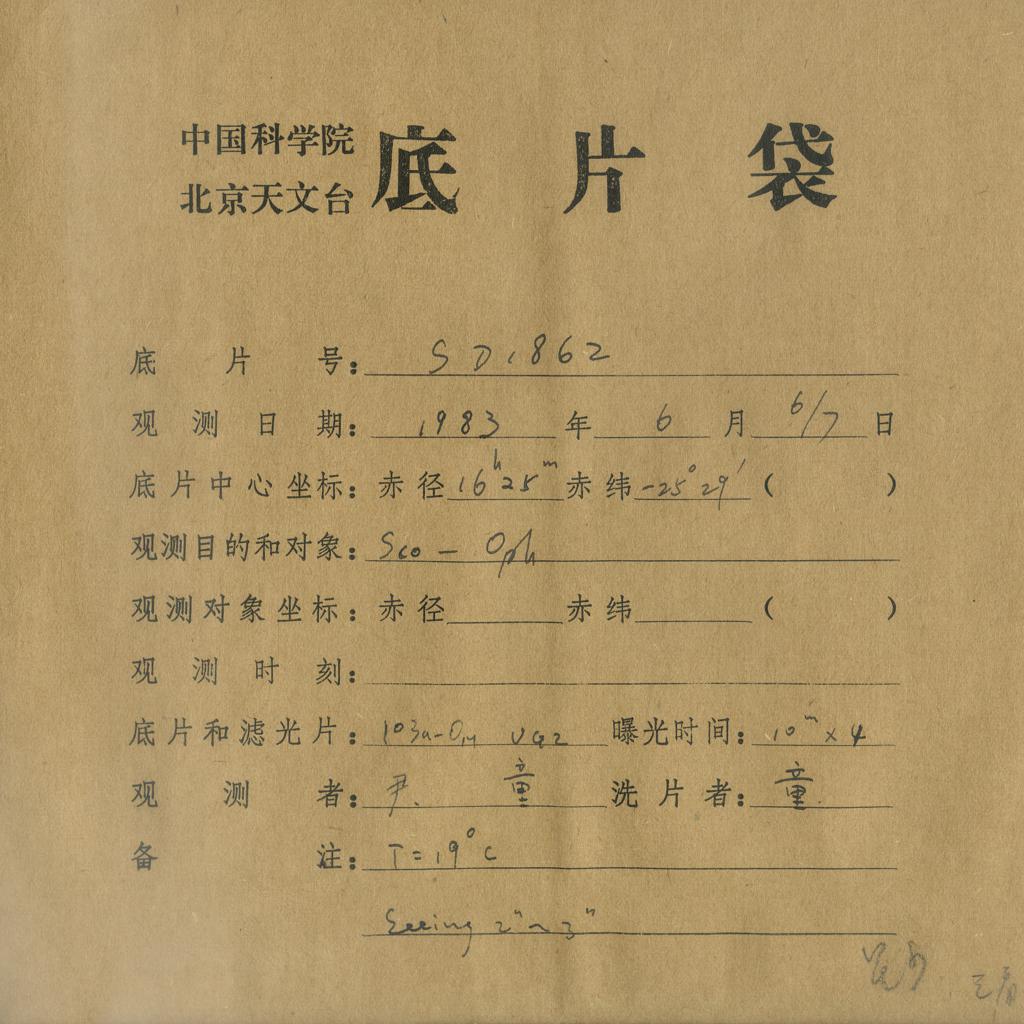 中国科学院
北京天文台 底片袋
底片号: SD1862
观测日期: 1983年6月6/7日
底片中心坐标: 赤径16h25m赤纬-25°29′( )
观测目的和对象: Sco - Oph
观测对象坐标: 赤径 赤纬 ( )
观测时刻:
底片和滤光片: 103a-O UG2 曝光时间: 10m×4
观测者: 尹. 童 洗片者: 童.
备注: T=19°C
Seeing 2″~3″